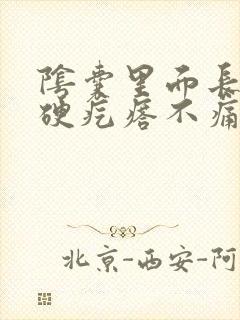 阴囊里而長
硬疙瘩不痛
北京-西安-阿